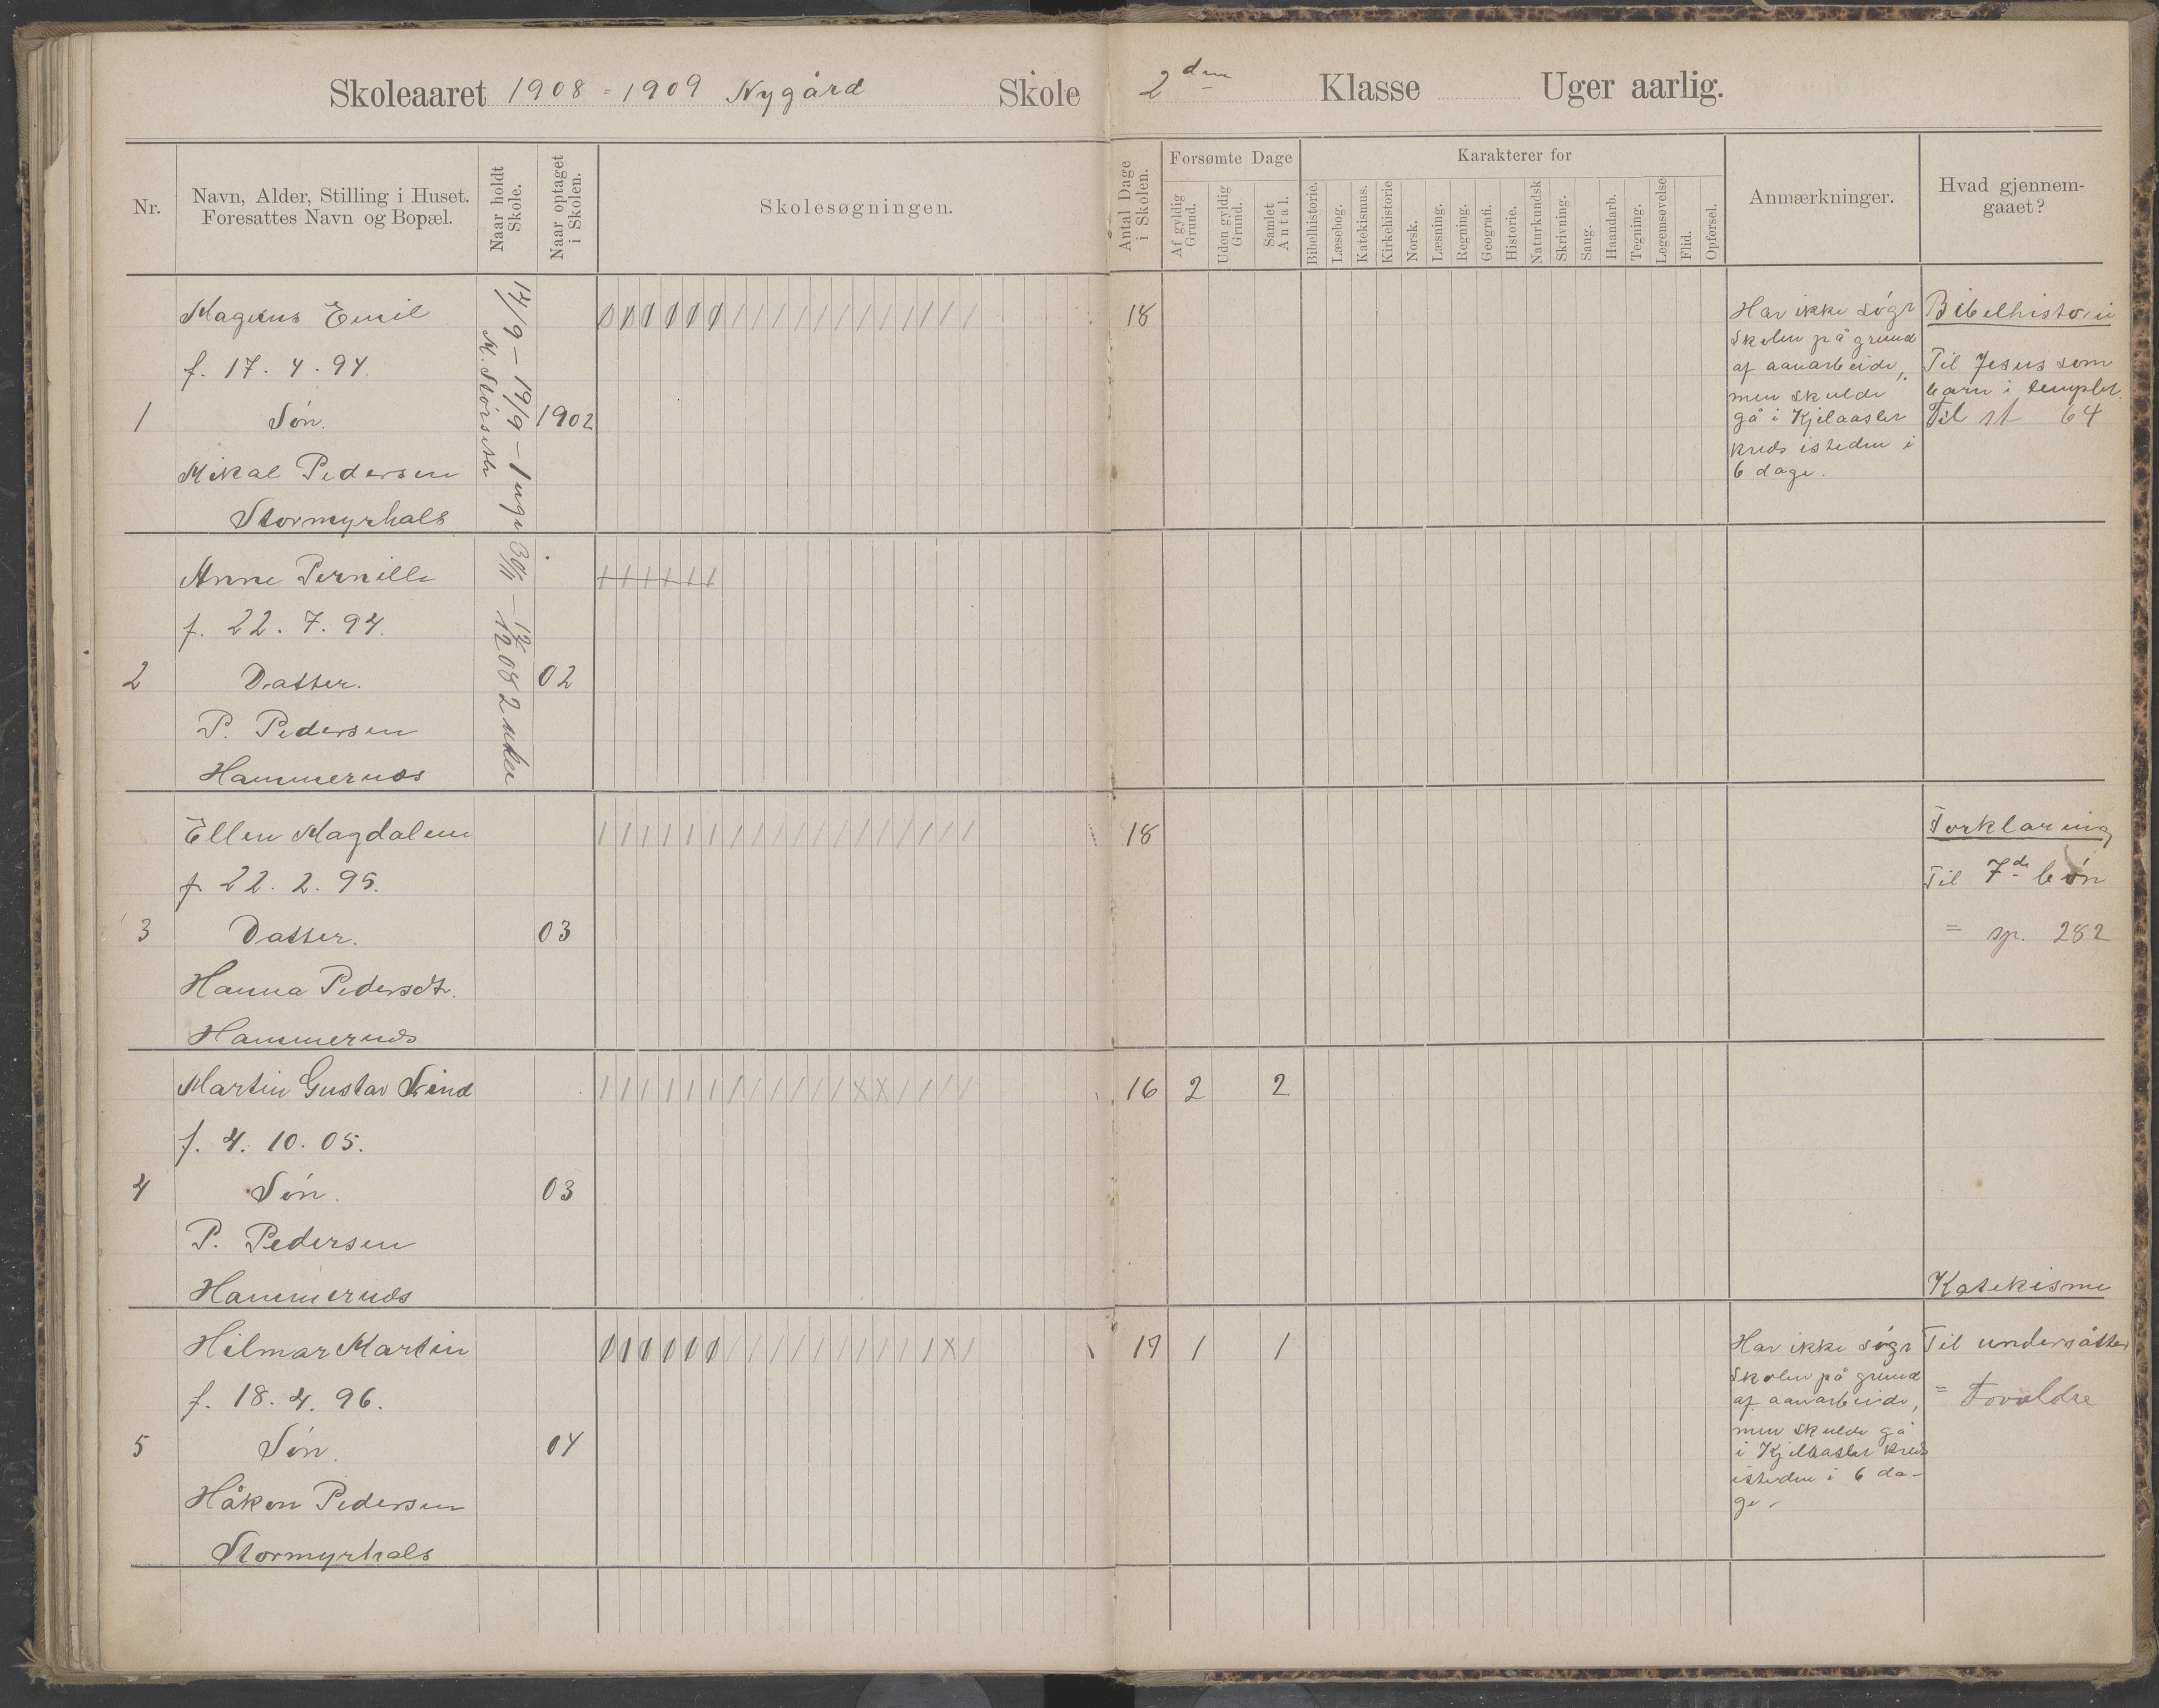 Skoleaaret 1908 = 1909 Nygård Skole 2den Klasse Uger aarlig.
Nr.
Navn, Alder, Stilling i Huset.
Foresattes Navn og Bopæl.
Naar holdt
Skole.
Naar optaget
i Skolen.
Skolesøgningen.
Antal Dage
i Skolen.
Forsømte Dage
Af gyldig
Grund.
Uden gyldig
Grund.
Samlet
Antal.
Karakterer for
Bibelhistorie.
Læsebog.
Katekismus.
Kirkehistorie
Norsk.
Læsning.
Regning.
Geografi.
Historie.
Naturkundsk
Skrivning.
Sang.
Haandarb.
Tegning.
Legemsøvelse
Flid.
Opførsel.
Anmærkninger.
Hvad gjennem-
gaaet?
14/9 – 19/9 – 1 uge
30/11 – 12/12 08 2 uker
1
Magnus Emil
f. 17. 4. 94.
Søn.
Mikal Pedersen
Stormyrhals
1902
18
Har ikke søgt
skolen på grund
af aanarbeide,
men skulde
gå i Kjelaasler
kreds isteden i
6 dage.
Bibelhistorie
Til Jesus som
barn i templet
Til st 64
2
Anne Pernille
f. 22. 7. 94.
Datter.
P. Pedersen
Hammernæs
02
3
Ellen Magdalene
f. 22. 2. 95.
Datter.
Hanna Pedersdt.
Hammernæs
03
18
Forklaring
Til 7de bøn
= sp. 282
4
Martin Gustav Lind
f. 4. 10. 05.
Søn.
P. Pedersen
Hammernæs
03
16 2 2
Katekisme
5
Hilmar Martin
f. 18. 4. 96.
Søn.
Håken Pedersen
Stormyrhals
04
17 1 1
Har ikke søgt
skolen på grund
af aanarbeide,
men skulde gå
i Kjelaasler kreds
isteden i 6 da-
ge.
Til undersåtter
= Forældre